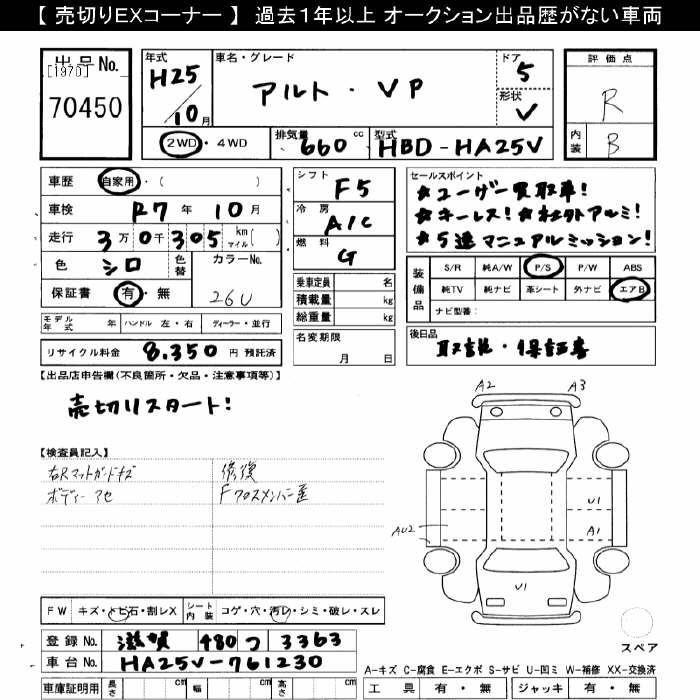 【 売切りEXコーナー 】 過去1年以上 オークション出品歴がない車両
出品 No.
[1970]
70450
年式 H25 / 10 月
車名・グレード アルト・VP
ドア 5
形状 V
2WD・4WD
排気量 660 cc
型式 HBD-HA25V
評価点 R
内装 B
車歴 自家用・( )
車検 R7 年 10 月
走行 3万0千305 km マイル( )
色 シロ 色替 カラーNo. 26U
保証書 有・無
モデル年式 年 ハンドル 左・右 ディーラー・並行
リサイクル料金 8,350 円 預託済
シフト F5
冷房 A/C
燃料 G
乗車定員 名
積載量 kg
総重量 kg
名変期限 月 日
セールスポイント
★ユーザー買取車!
★キーレス!★社外アルミ!
★5速マニュアルミッション!
装備品 S/R 純A/W P/S P/W ABS
純TV 純ナビ 革シート 外ナビ エアB
ナビ型番:
後日品
取説・保証書
【出品店申告欄(不良箇所・欠品・注意事項等)】
売切りスタート!
【検査員記入】
右Rマットガードキズ 修復
ボディーアセ Fクロスメンバー歪
A2 A3
U1
AU2 A1
U1
スペア
FW キズ・トビ石・割レX シート内装 コゲ・穴・汚レ・シミ・破レ・スレ
登録 No. 滋賀 480 つ 3363
車台 No. HA25V-761230
車庫証明用 長さ cm 幅 cm 高さ cm
A-キズ C-腐食 E-エクボ S-サビ U-凹ミ W-補修 XX-交換済
工具 有・無 ジャッキ 有・無